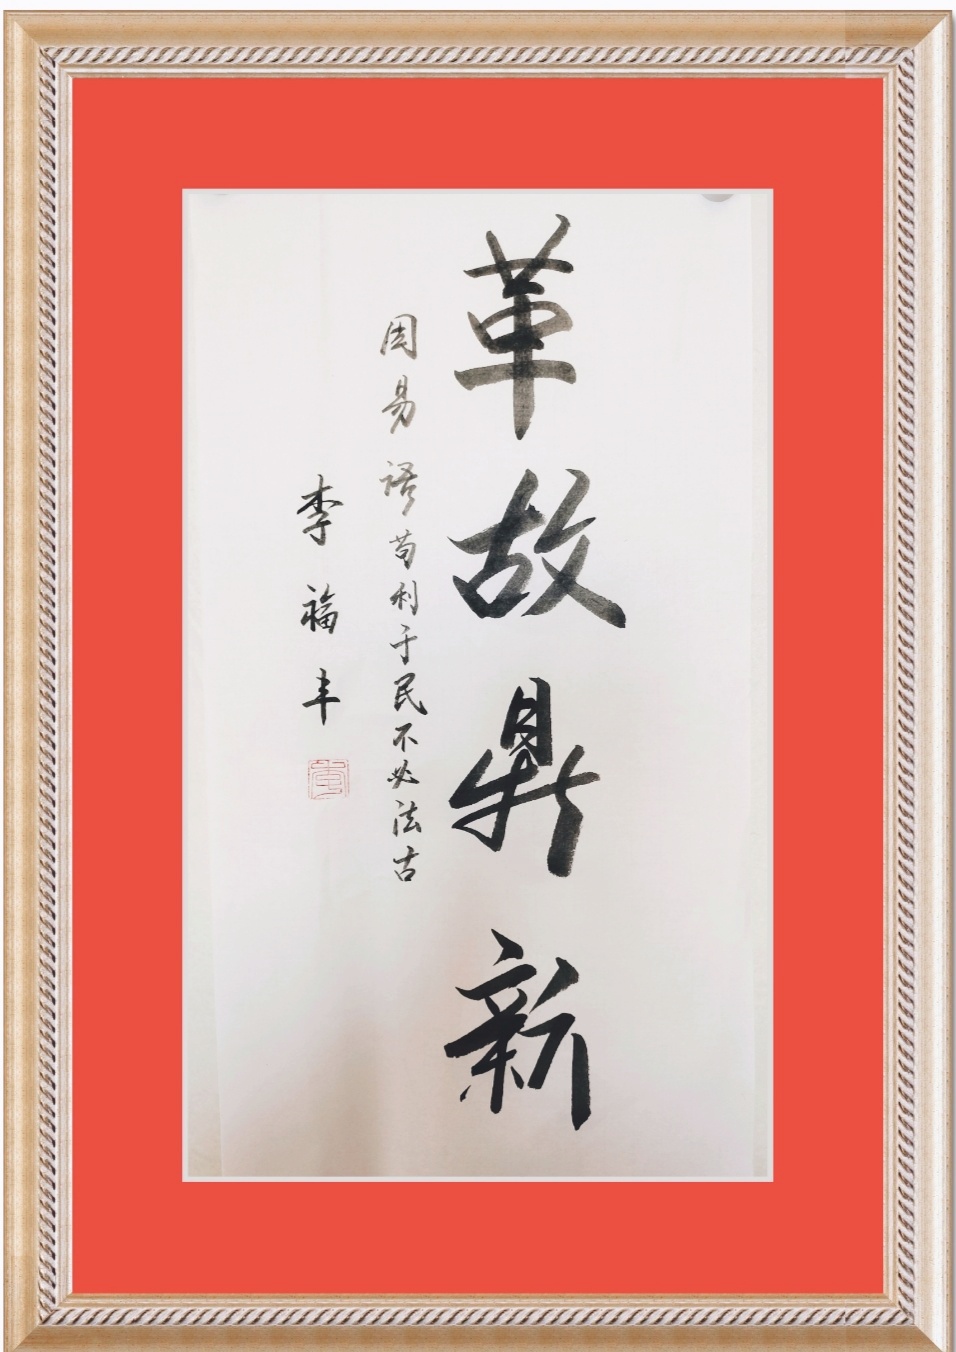 革故鼎新
周易语苟利于民不必法古
李福丰